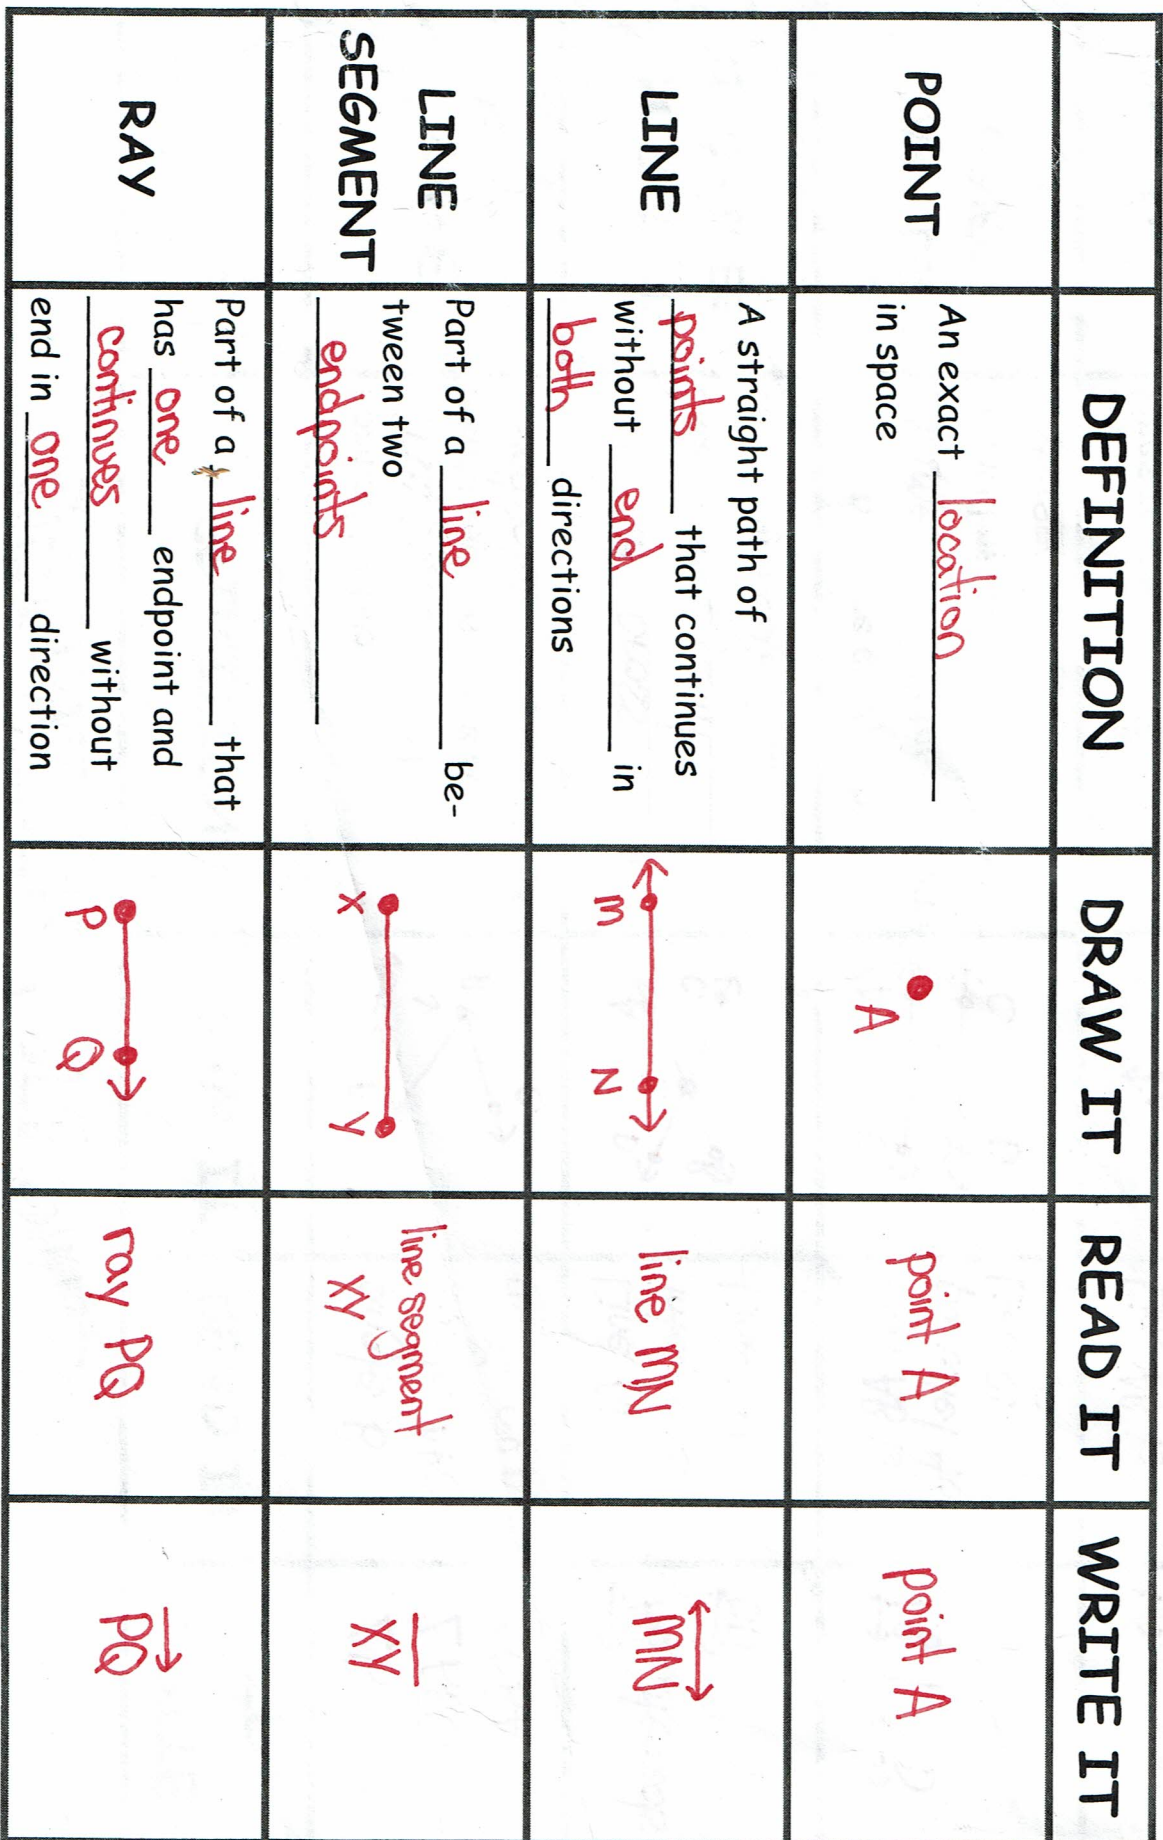 DEFINITION DRAW IT READ IT WRITE IT
POINT
An exact location
in space
A
point A
point A
LINE
A straight path of
points that continues
without end in
both directions
M N
line MN
MN
LINE
SEGMENT
Part of a line be-
tween two
endpoints
X Y
line segment
XY
XY
RAY
Part of a line that
has one endpoint and
continues without
end in one direction
P Q
ray PQ
PQ